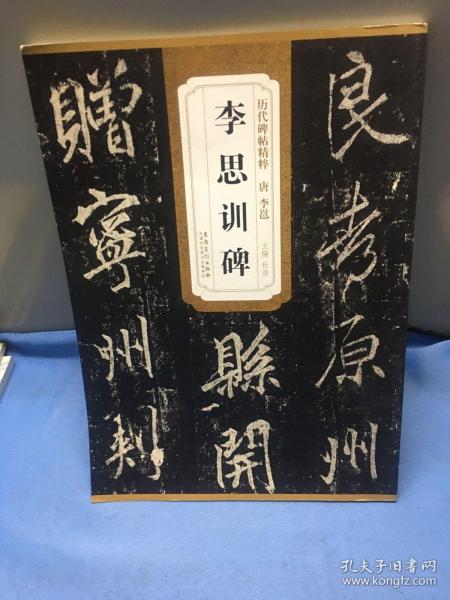 历代碑帖精粹 唐 李邕
李思训碑
主编 杜浩
安徽美术出版社
良孝原州
縣開
贈寧州刺
孔夫子旧书网
www.kongfz.com